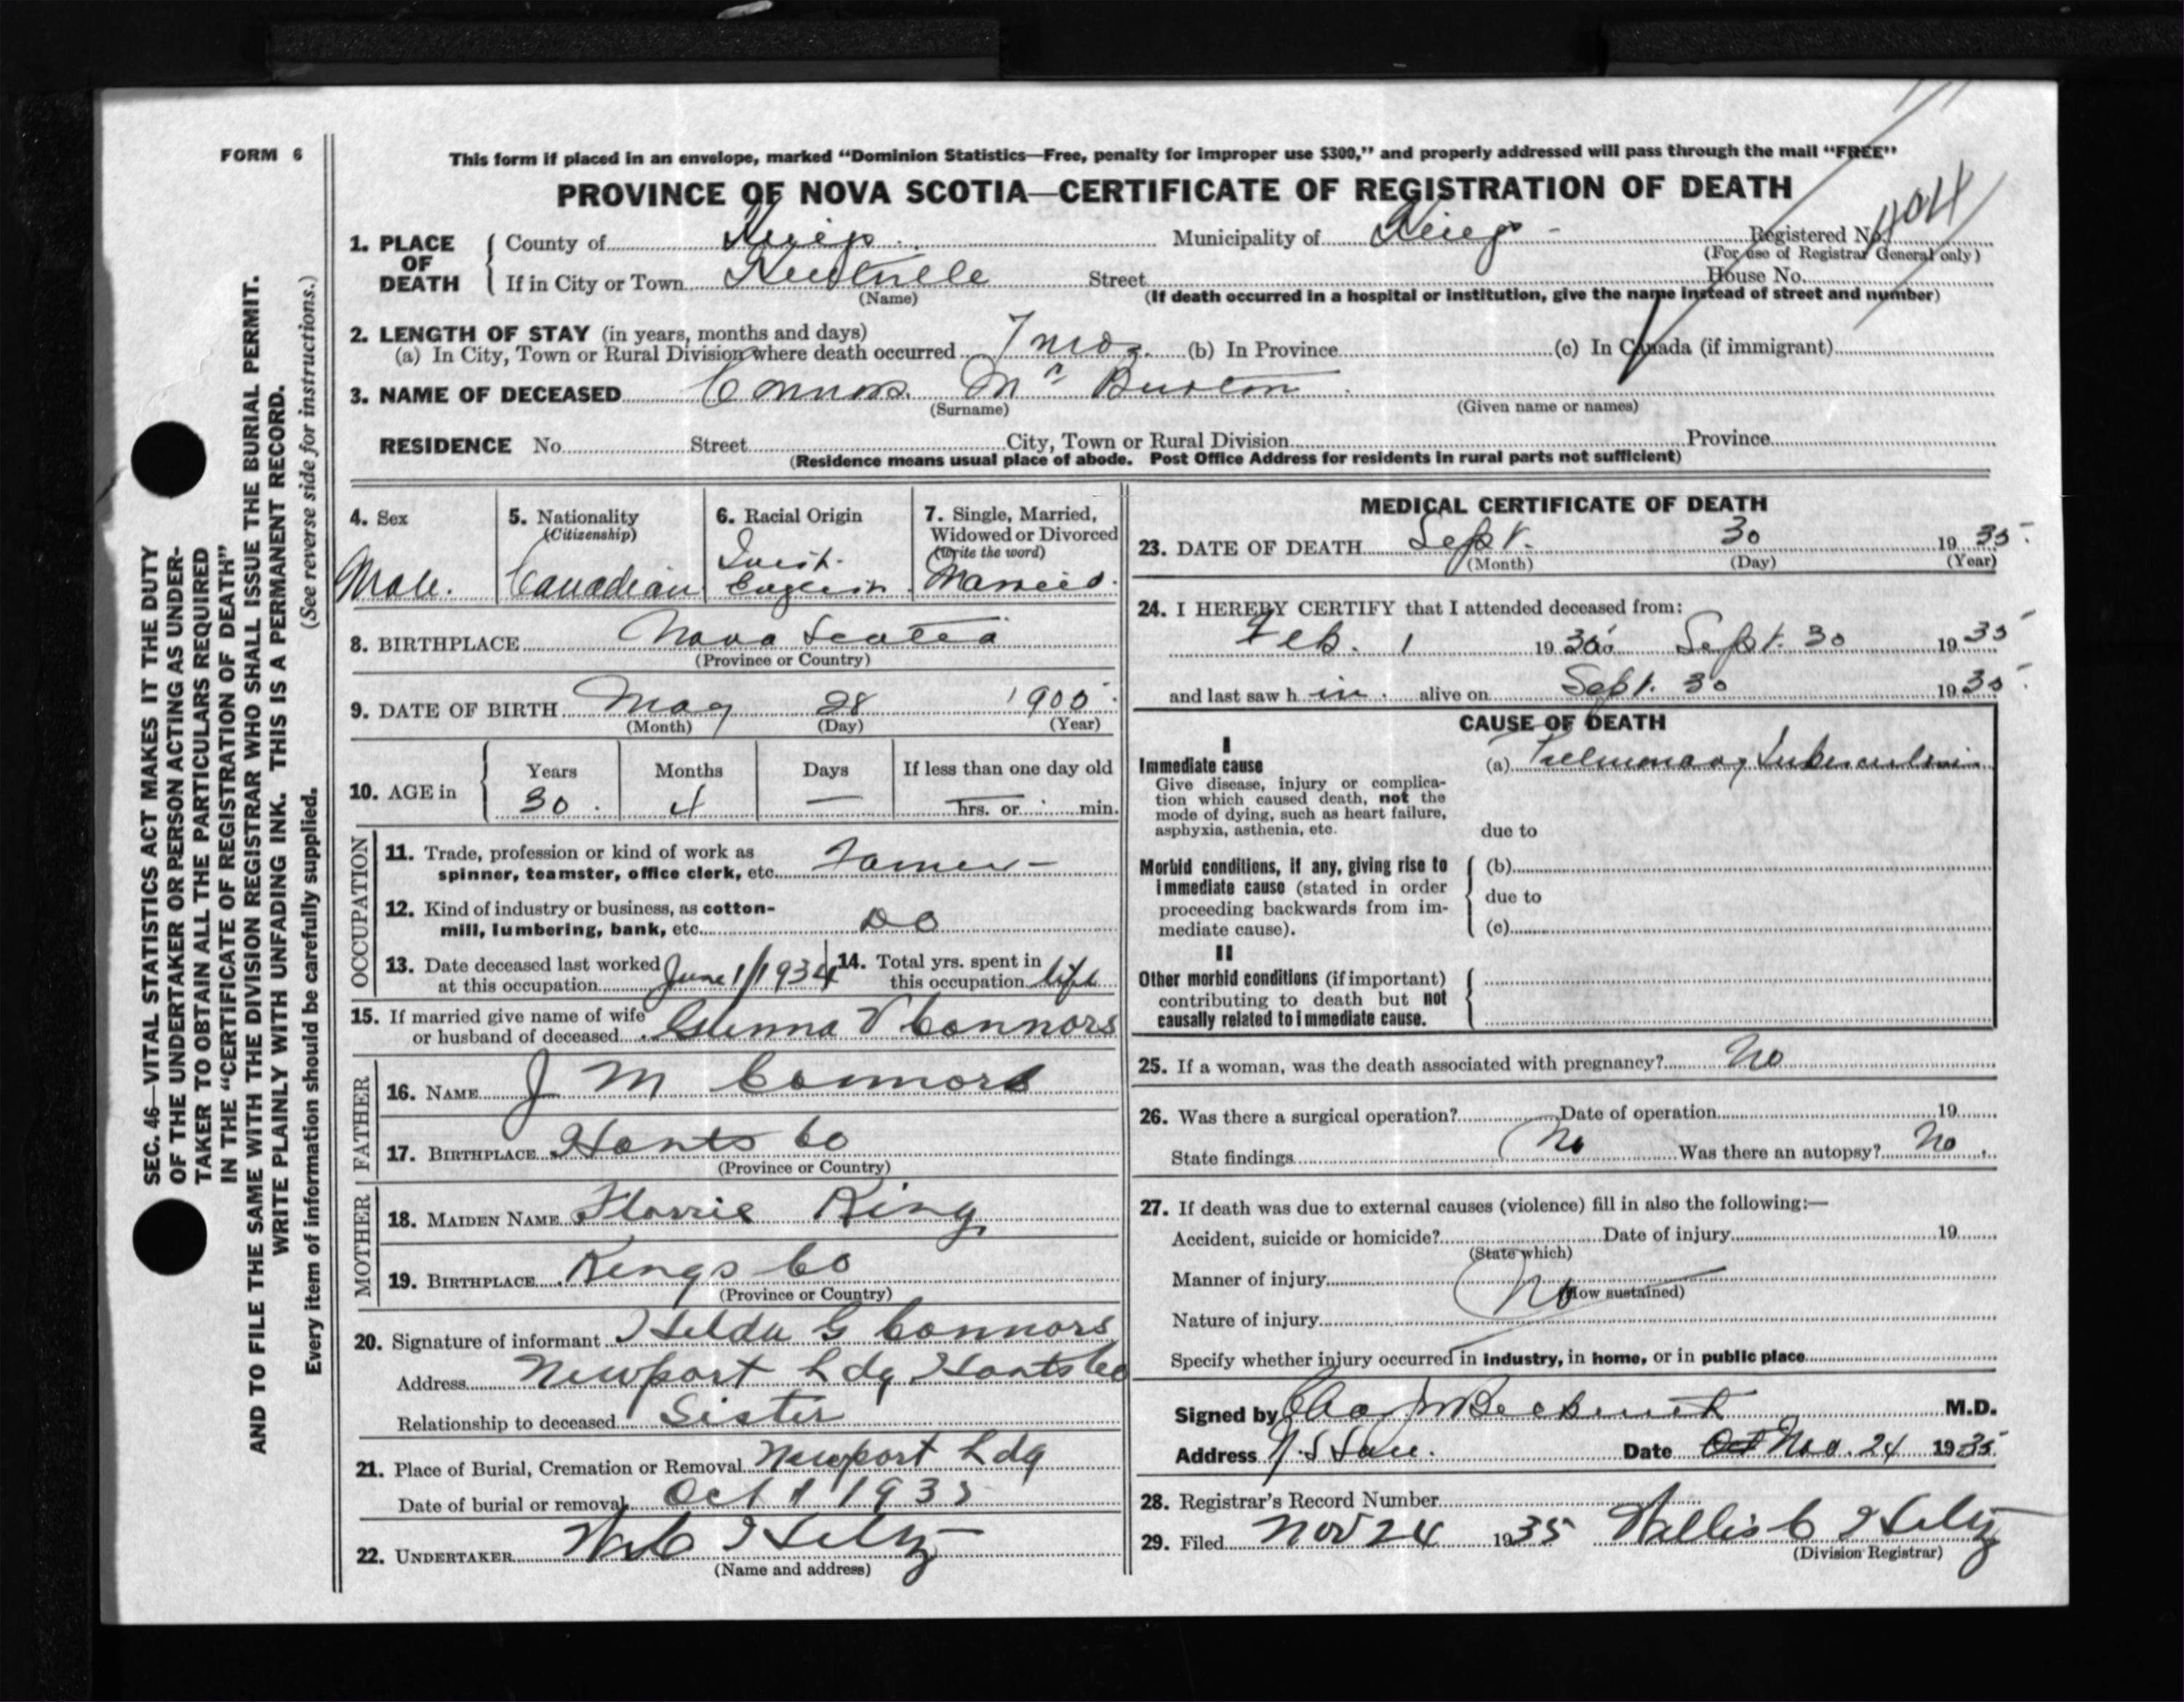 FORM 6
This form if placed in an envelope, marked “Dominion Statistics—Free, penalty for improper use $300,” and properly addressed will pass through the mail “FREE”
PROVINCE OF NOVA SCOTIA—CERTIFICATE OF REGISTRATION OF DEATH
1. PLACE OF DEATH County of Kings Municipality of Kings Registered No. 1104
(For use of Registrar General only)
If in City or Town Kentville Street House No.
(Name) (If death occurred in a hospital or institution, give the name instead of street and number)
2. LENGTH OF STAY (in years, months and days)
(a) In City, Town or Rural Division where death occurred 7 mos. (b) In Province (c) In Canada (if immigrant)
3. NAME OF DECEASED Connors Burton
(Surname) (Given name or names)
RESIDENCE No. Street City, Town or Rural Division Province
(Residence means usual place of abode. Post Office Address for residents in rural parts not sufficient)
4. Sex 5. Nationality 6. Racial Origin 7. Single, Married,
(Citizenship) Widowed or Divorced
(Write the word)
Male. Canadian Irish. English Married.
8. BIRTHPLACE Nova Scotia
(Province or Country)
9. DATE OF BIRTH May 28 1905
(Month) (Day) (Year)
10. AGE in Years Months Days If less than one day old
30 4 — hrs. or min.
OCCUPATION
11. Trade, profession or kind of work as
spinner, teamster, office clerk, etc. Farmer
12. Kind of industry or business, as cotton-
mill, lumbering, bank, etc. DO
13. Date deceased last worked at this occupation June 1/1934 14. Total yrs. spent in this occupation life
15. If married give name of wife
or husband of deceased Connors
FATHER
16. NAME J M Connors
17. BIRTHPLACE Hants Co
(Province or Country)
MOTHER
18. MAIDEN NAME Florrie King
19. BIRTHPLACE Kings Co
(Province or Country)
20. Signature of informant Hilda G Connors
Address Newport Ldg Hants Co
Relationship to deceased Sister
21. Place of Burial, Cremation or Removal Newport Ldg
Date of burial or removal Oct 1 1935
22. UNDERTAKER W C Hiltz
(Name and address)
MEDICAL CERTIFICATE OF DEATH
23. DATE OF DEATH Sept. 30 1935
(Month) (Day) (Year)
24. I HEREBY CERTIFY that I attended deceased from:
Feb. 1 1935 Sept. 30 1935
and last saw h im alive on Sept. 30 1935
CAUSE OF DEATH
I
Immediate cause (a) Pulmonary Tuberculosis
Give disease, injury or complica-
tion which caused death, not the
mode of dying, such as heart failure,
asphyxia, asthenia, etc. due to
Morbid conditions, if any, giving rise to (b)
immediate cause (stated in order due to
proceeding backwards from im-
mediate cause). (c)
II
Other morbid conditions (if important)
contributing to death but not
causally related to immediate cause.
25. If a woman, was the death associated with pregnancy? No
26. Was there a surgical operation? Date of operation 19
State findings No Was there an autopsy? No
27. If death was due to external causes (violence) fill in also the following:—
Accident, suicide or homicide? Date of injury 19
(State which)
Manner of injury
No (How sustained)
Nature of injury
Specify whether injury occurred in industry, in home, or in public place
Signed by M.D.
Address N.S. San. Date Oct Nov. 24 1935
28. Registrar's Record Number
29. Filed Nov 24 1935 Willis C Hiltz
(Division Registrar)
SEC. 46—VITAL STATISTICS ACT MAKES IT THE DUTY
OF THE UNDERTAKER OR PERSON ACTING AS UNDER-
TAKER TO OBTAIN ALL THE PARTICULARS REQUIRED
IN THE “CERTIFICATE OF REGISTRATION OF DEATH”
AND TO FILE THE SAME WITH THE DIVISION REGISTRAR WHO SHALL ISSUE THE BURIAL PERMIT.
WRITE PLAINLY WITH UNFADING INK. THIS IS A PERMANENT RECORD.
Every item of information should be carefully supplied. (See reverse side for instructions.)